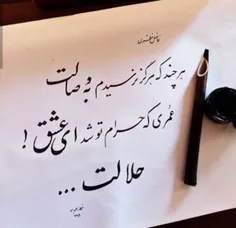 هرچند که هرگز نرسیدم به وصالت
عمری که حرام تو شد ای عشق !
حلالت ...